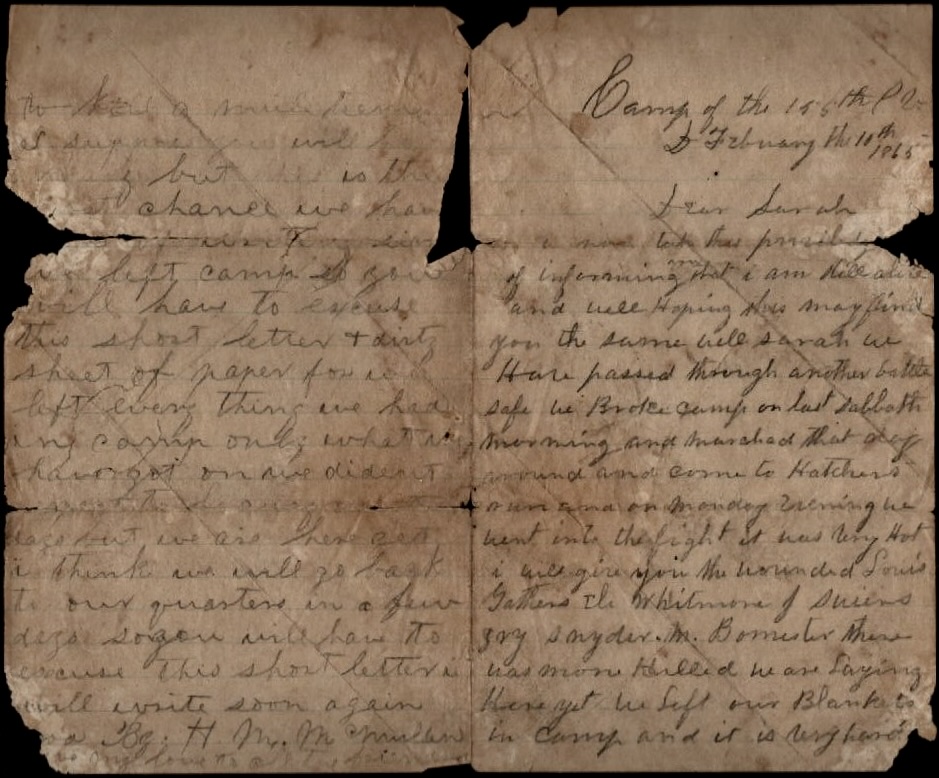 Camp of the 155th P V
February the 10th
1865
Dear Sarah
i now take this
of informing that i am still alive
and well Hoping this may find
you the same well sarah we
Have passed through another battle
safe we Broke camp on last sabbath
morning and marchad that day
around and come to Hatchers
run and on monday Evening we
went into the fight it was very Hot
i will give you the wounded Louis
Gathers Whitmore J
snyder. M. Bomister there
was more Killed we are Laying
Here yet we Left our Blankets
in camp and it is very hard
to
i suppose you will
but this is the
chance we hav
left camp so you
will have to excuse
this short letter + dirty
sheet of paper for we
left every thing we had
in camp only what we
have got on we dident
days but we are here yet
i think we will go back
to our quarters in a few
days so you will have to
excuse this short letter i
will write soon again
H M. Mc mullen
my love to